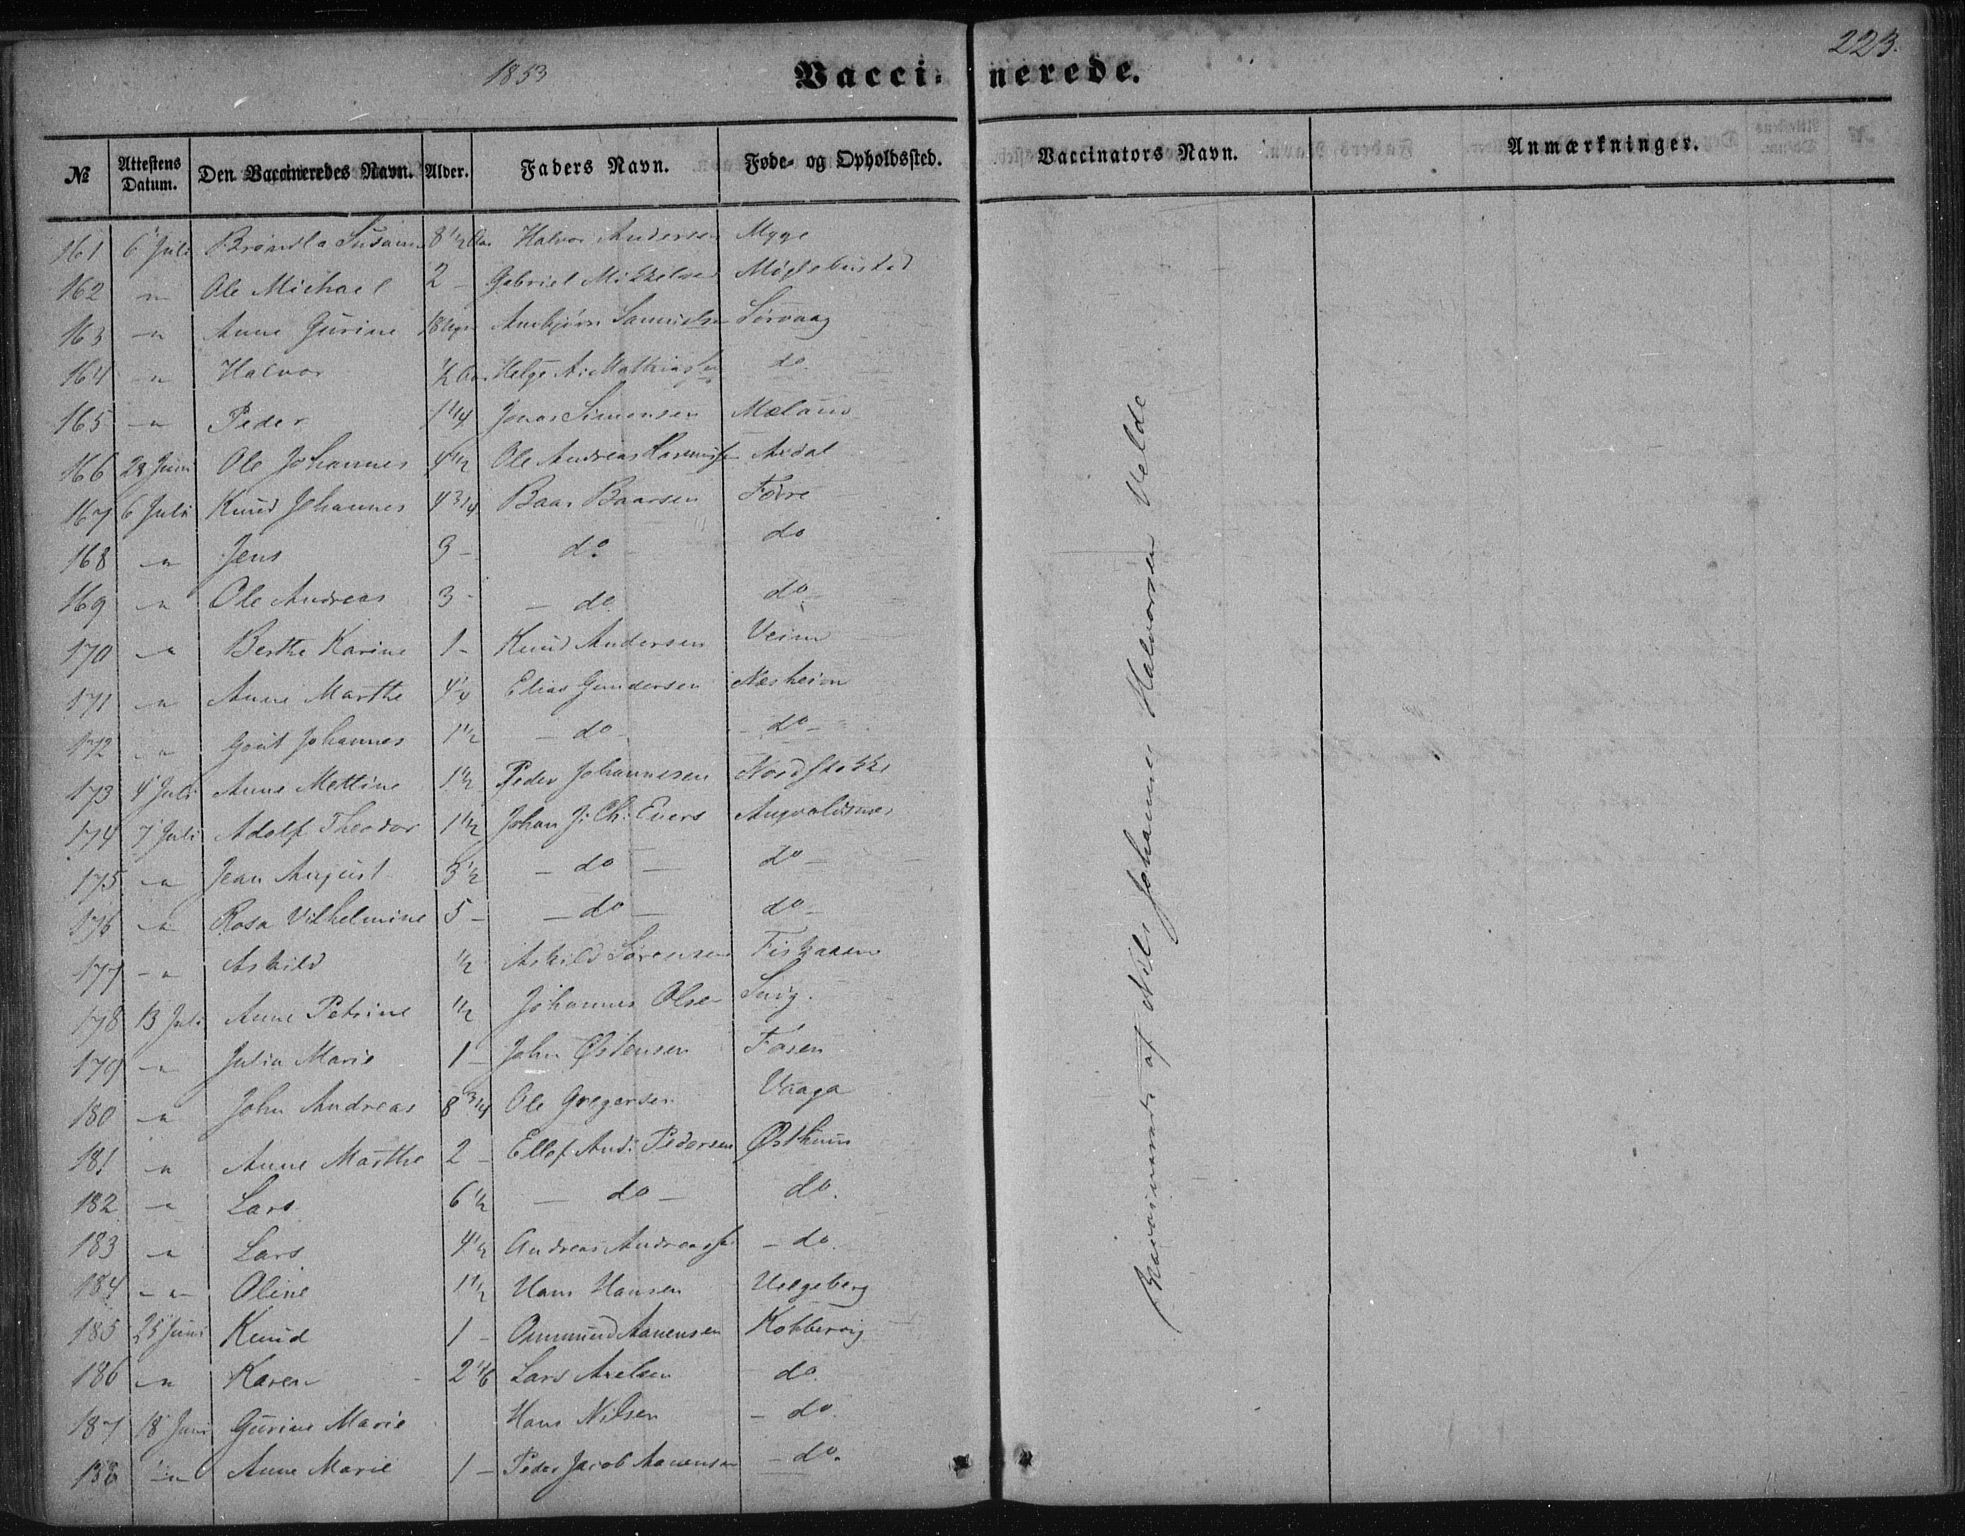 223.
1853
Vaccinerede.
№ Attestens Datum. Den Vaccineredes Navn. Alder. Faders Navn. Føde- og Opholdssted. Vaccinators Navn. Anmærkninger.
161 6 Juli Brønila Susanne 8 1/2 Aar Halvor Andersen Myge
162 -"- Ole Michael 2 - Gabriel Mikkelsen
163 -"- Anne Gurine 18 Uger Ambjørn Samuelsen Sørvaag
164 -"- Halvor 1/2 Aar Helge A. Mathiassen do
165 -"- Peder 1 1/4 Jonas Simonsen Mæland
166 28 Juni Ole Johannes 4 1/2 Ole Andreas Rasmussen Axdal
167 6 Juli Knud Johannes 4 3/4 Baar Baarsen Førre
168 -"- Jens 9 - do - do
169 -"- Ole Andreas 3 - - do do -
170 -"- Berthe Karine 1 - Knud Andersen Veim
171 -"- Anne Marthe 4 1/4 Elias Gundersen Næsheim
172 -"- Johannes 1 1/2 - do - - do -
173 4 Juli Anne Mettine 1 1/2 Peder Johannesen Nordstokke
174 7 Juli Adolf Theodor 1 1/2 Johan J. Ch. Evers Augvaldsnæs
175 -"- Jean August 3 1/2 - do - do -
176 -"- Rosa Vilhelmine 5 - - do - do -
177 -"- Askild 1/2 Askild Sørensen Fiskaaen
178 13 Juli Anne Petrine 1/2 Johannes Olsen Snig.
179 -"- Julia Marie 1 - John Østensen Fosen
180 -"- John Andreas 8 3/4 Ole Gregersen Vaaga
181 -"- Anne Marthe 2 - Ellef And. Pedersen Østhuus
182 -"- Lars 6 1/2 - do - do.
183 -"- Lars 4 1/2 Andreas Andreassen - do.
184 -"- Oline 1 1/2 Hans Hansen Helgeberg
185 25 Juni Knud 1 - Ommund Aanensen Kobbervig
186 -"- Karen 2 1/6 Lars Axelsen - do.
187 18 Juni Gurine Marie Hans Nilsen - do.
188 -"- Anne Marie 1 - Peder Jacob Aanensen - do.
af Nils Johannes Halvorsen Velde